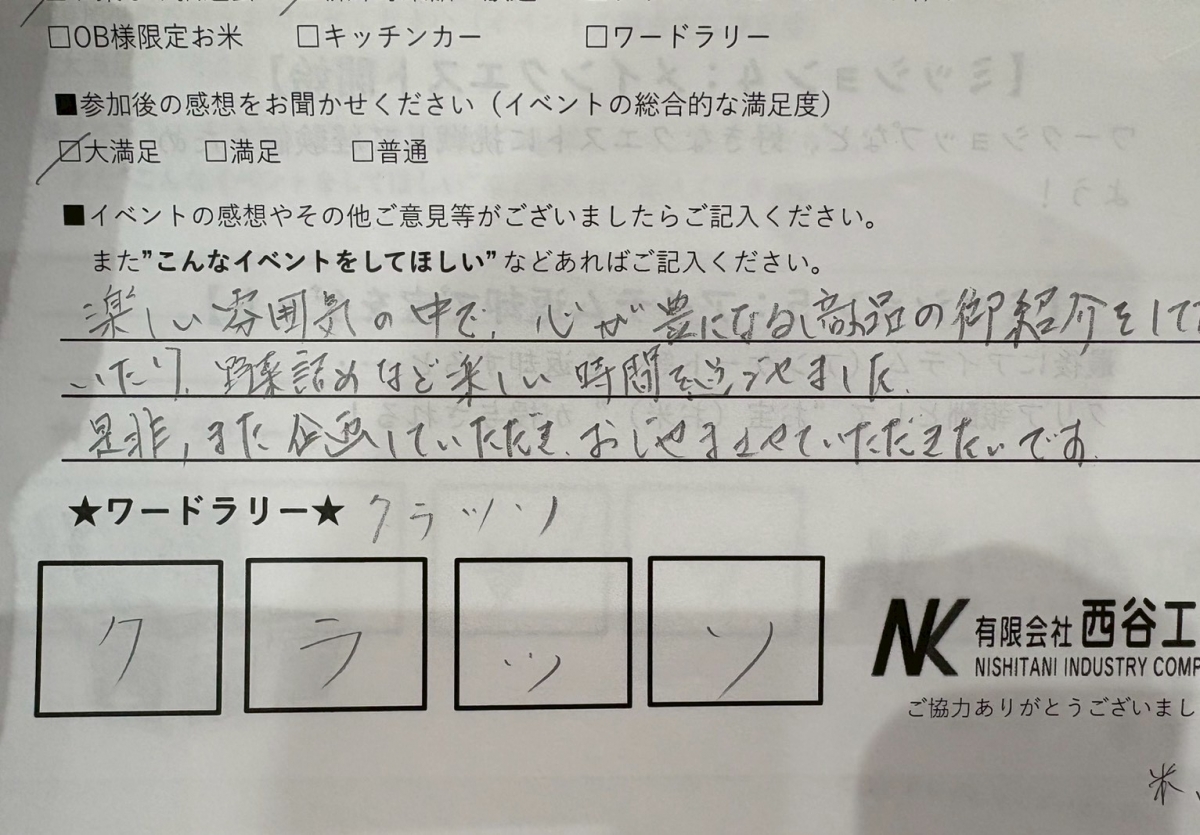 □OB様限定お米 □キッチンカー □ワードラリー
■参加後の感想をお聞かせください（イベントの総合的な満足度）
□大満足 □満足 □普通
■イベントの感想やその他ご意見等がございましたらご記入ください。
また”こんなイベントをしてほしい”などあればご記入ください。
楽しい雰囲気の中で、心が豊になる商品の御紹介をして
いたり、野菜詰めなど楽しい時間を過ごせました。
是非、またた企画していただき、おじゃまさせていただきたいです。
★ワードラリー★ クラッソ
ク ラ ッ ソ
NK 有限会社 西谷工
NISHITANI INDUSTRY COMP
ご協力ありがとうございまし
米